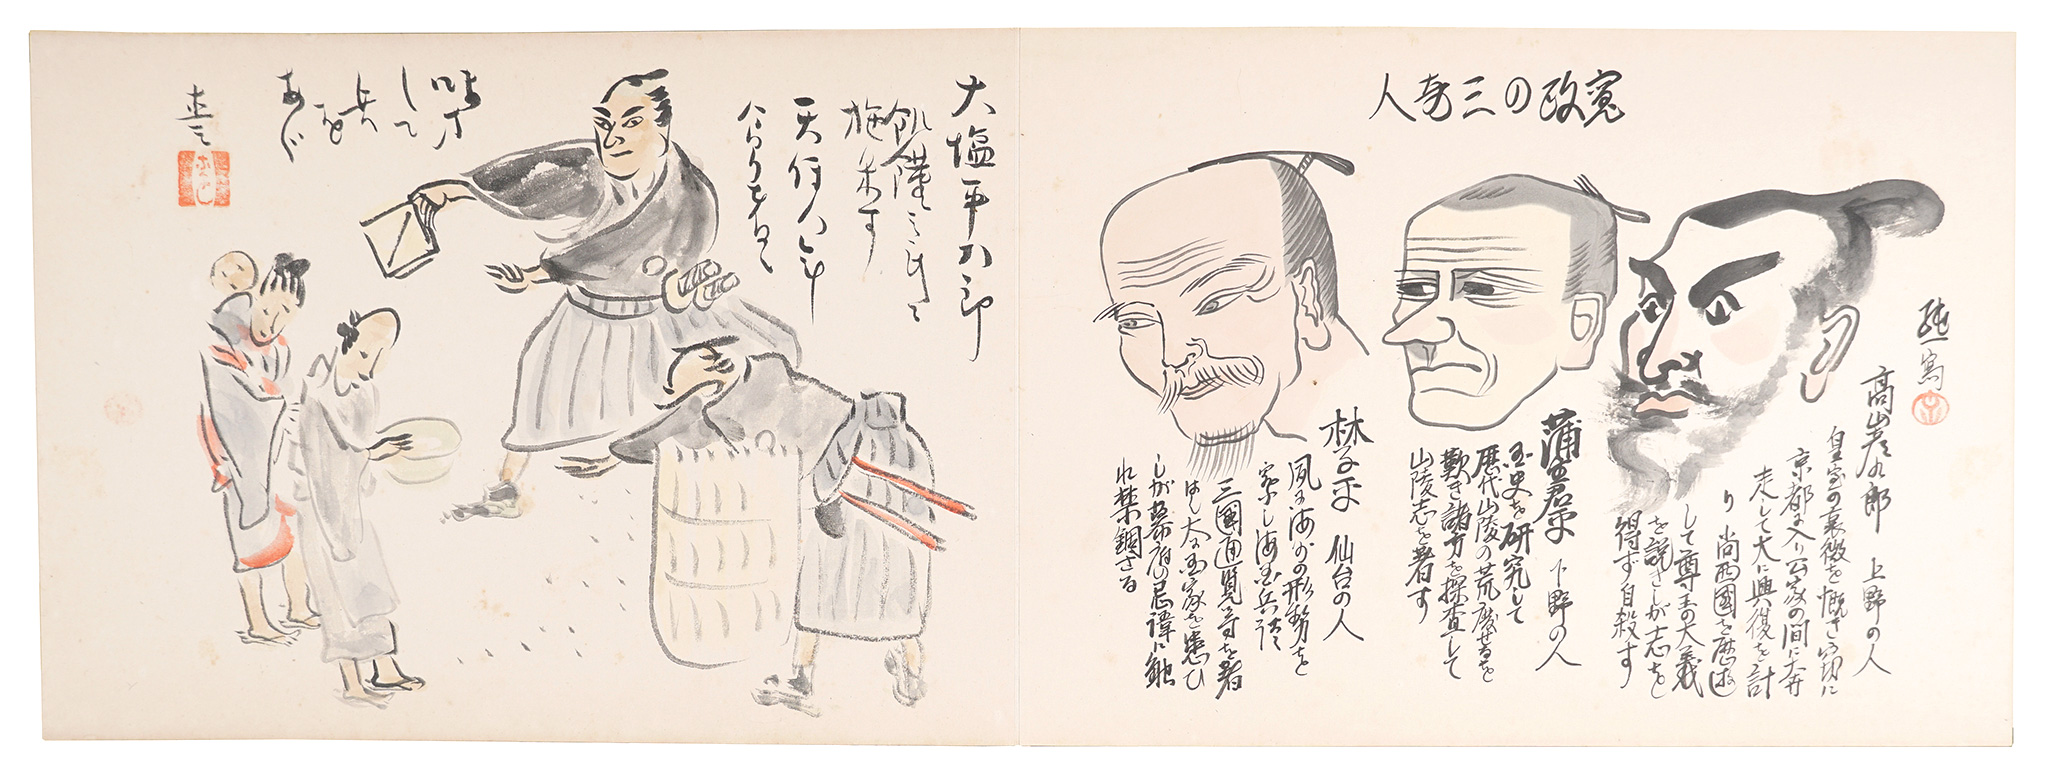 寛政の三奇人
純一寫
高山彦九郎 上野の人
皇室の衰微を慨き夙に
京都に入り公家の間に奔
走して大に興復を計
り 尚西國を歴遊
して尊王の大義
を説きしが志を
得ず自殺す
蒲生君平 下野の人
国史を研究して
歴代山陵の荒廢せるを
歎き諸方を探査して
山陵志を著す
林子平 仙台の人
夙に海外の形勢を
察し海国兵談
三國通覧等を著
はし大に国家を患ひ
しが幕府の忌諱に触
れ禁錮さる
大塩平八郎
飢饉の民に
施米す
天保八年
して
兵を
あぐ